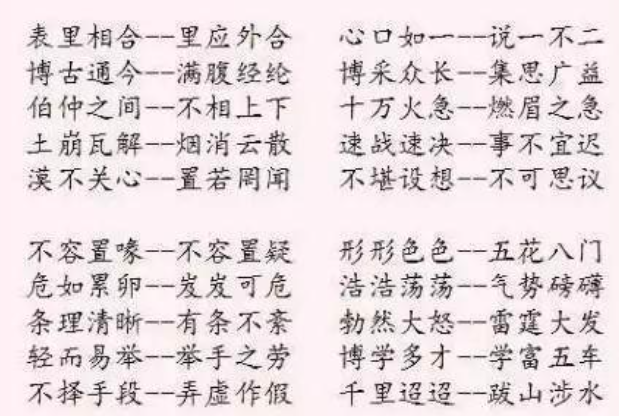 表里相合--里应外合 心口如一--说一不二
博古通今--满腹经纶 博采众长--集思广益
伯仲之间--不相上下 十万火急--燃眉之急
土崩瓦解--烟消云散 速战速决--事不宜迟
漠不关心--置若罔闻 不堪设想--不可思议
不容置喙--不容置疑 形形色色--五花八门
危如累卵--岌岌可危 浩浩荡荡--气势磅礴
条理清晰--有条不紊 勃然大怒--雷霆大发
轻而易举--举手之劳 博学多才--学富五车
不择手段--弄虚作假 千里迢迢--跋山涉水